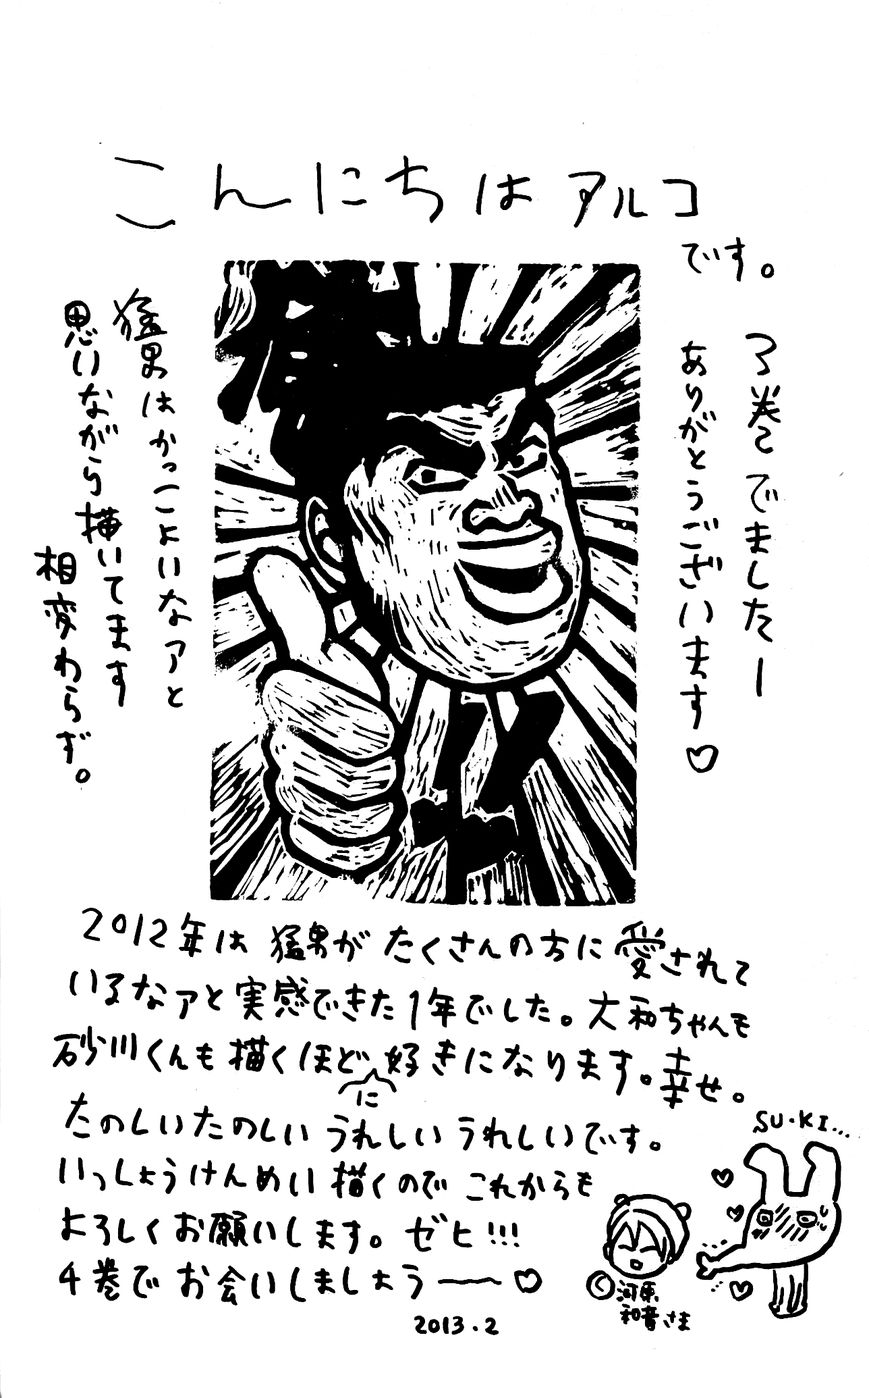 こんにちは アルコ
です。
3巻でましたー
ありがとうございます♡
猛男はかっこよいなァと
思いながら描いてます
相変わらず。
2012年は 猛男が たくさんの方に 愛されて
いるなァと実感できた1年でした。大和ちゃんも
砂川くんも描くほどに好きになります。幸せ。
たのしいたのしい うれしい うれしいです。
いっしょうけんめい 描くので これからも
よろしくお願いします。ゼヒ!!!
4巻で お会いしましょう〜♡
2013.2
SU・KI...
©河原
和音さま